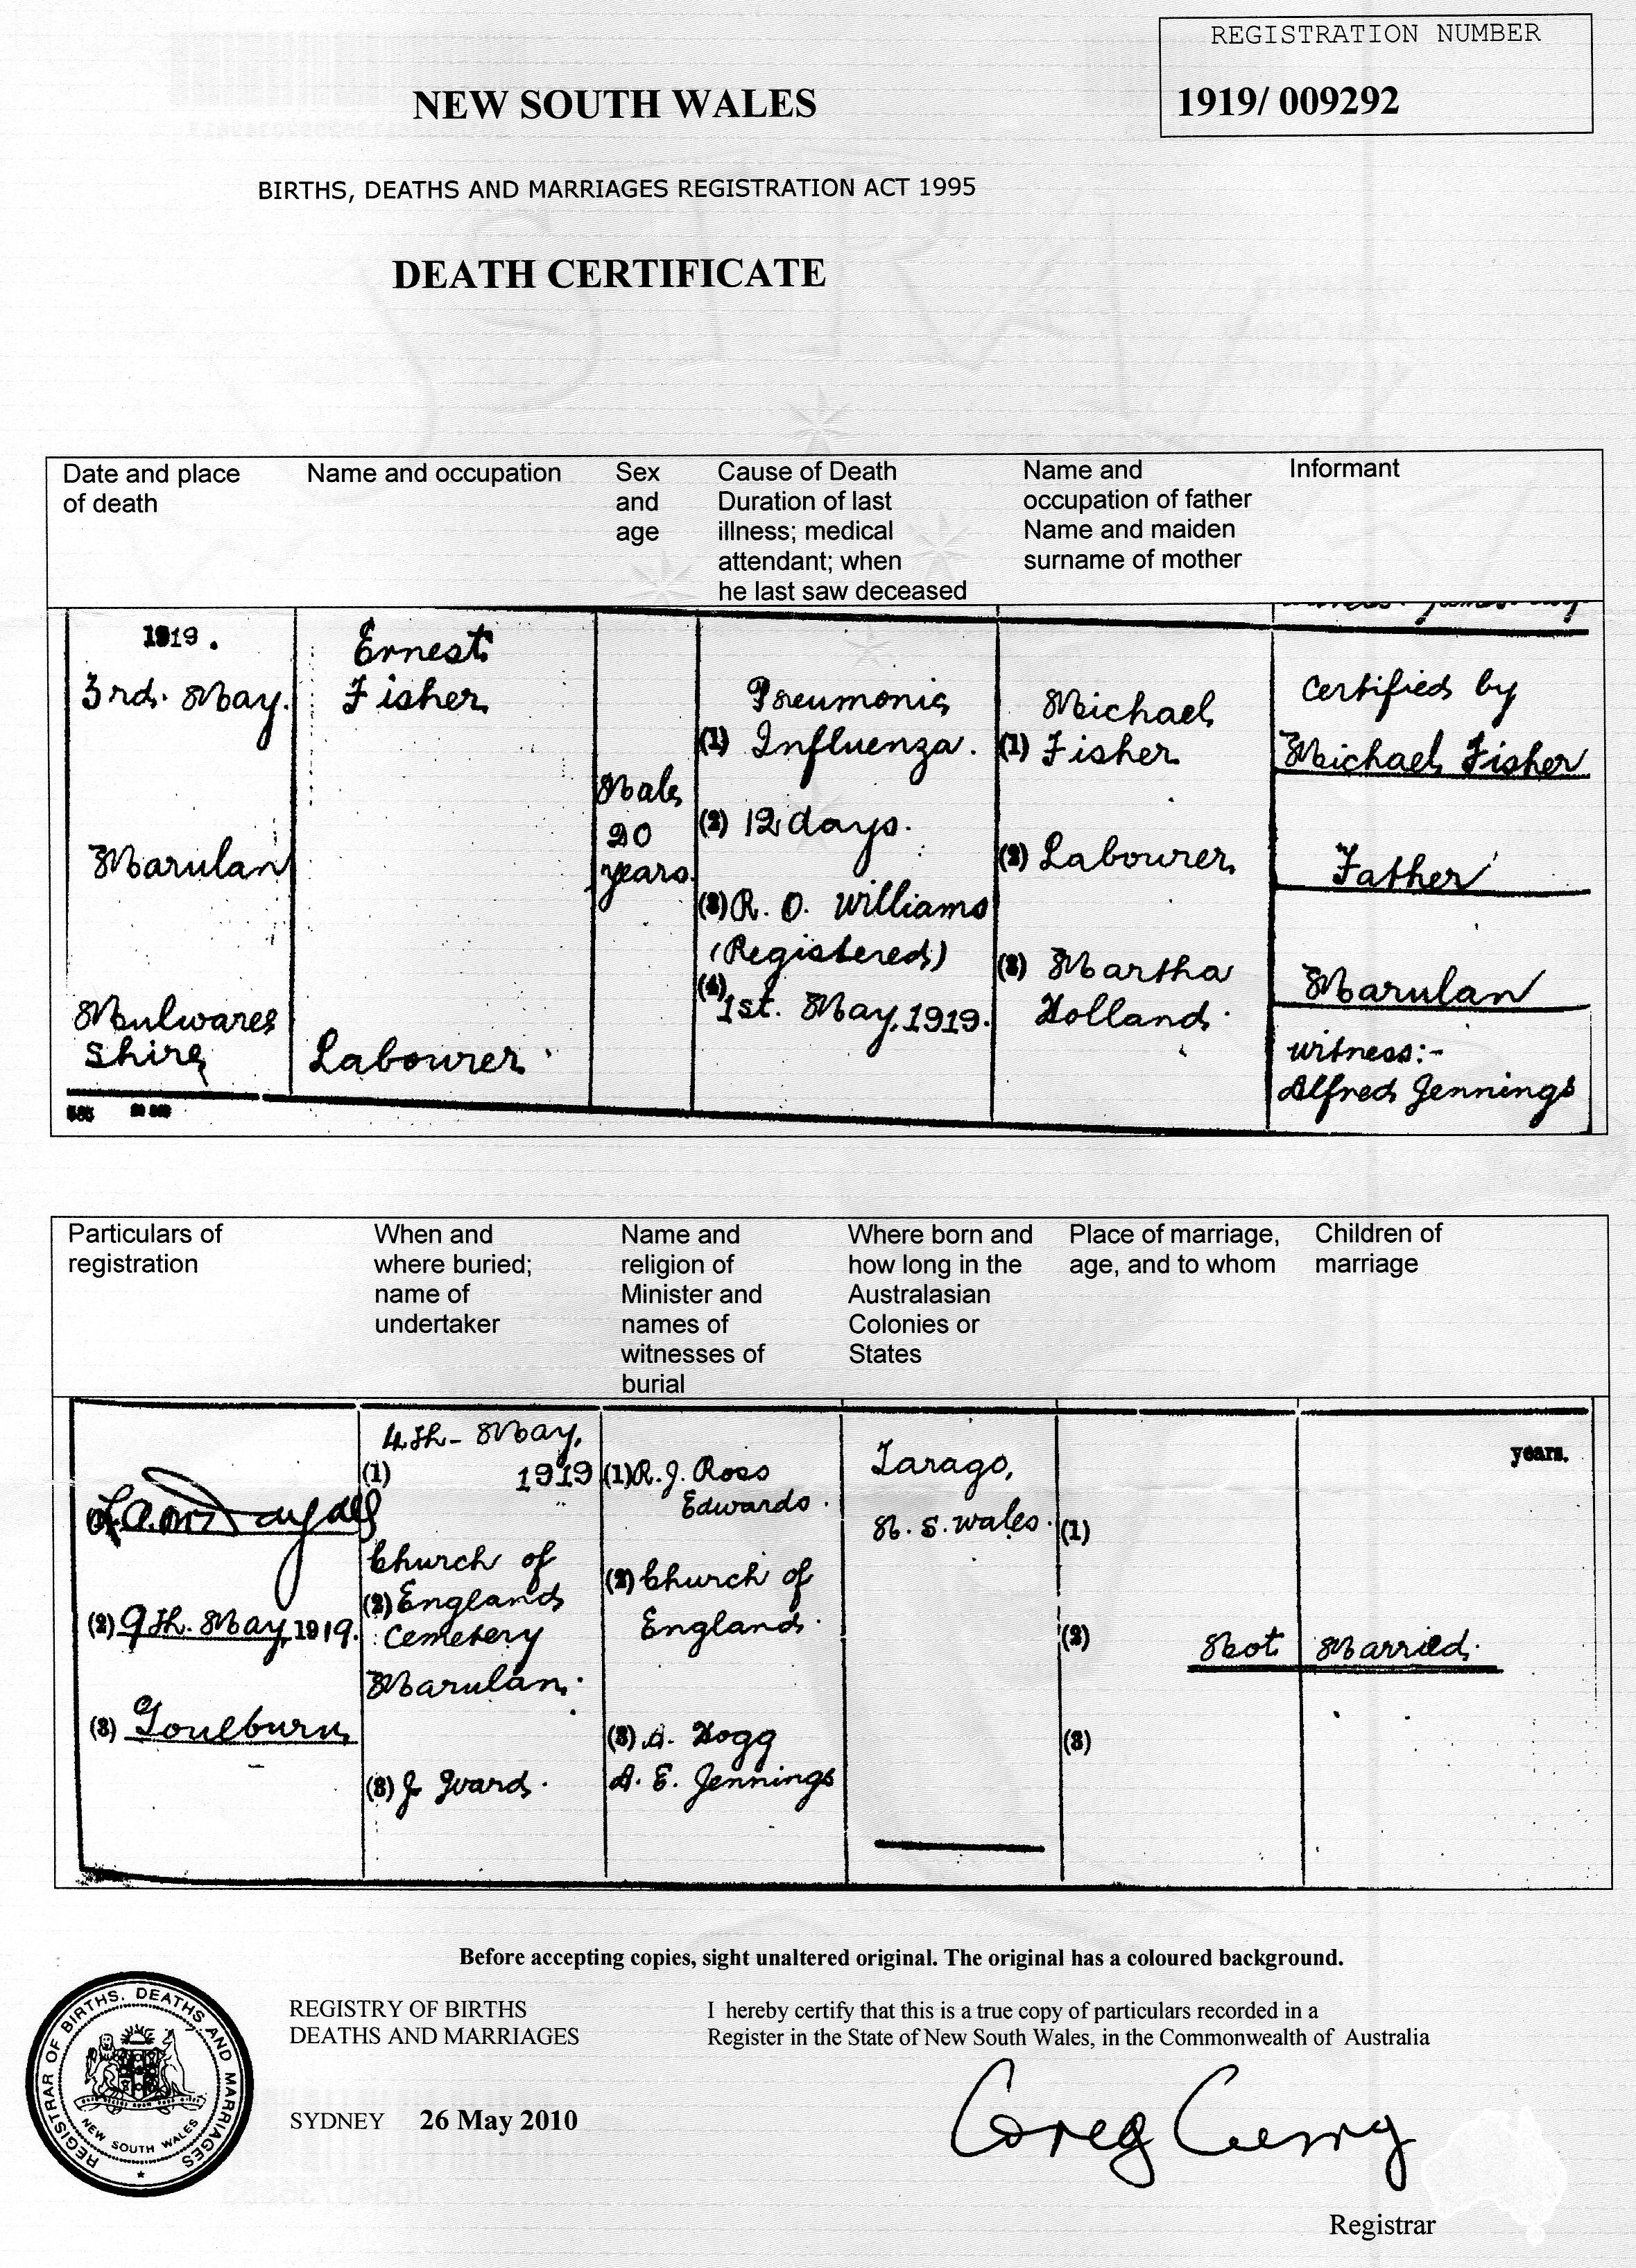 REGISTRATION NUMBER
1919/ 009292
NEW SOUTH WALES
BIRTHS, DEATHS AND MARRIAGES REGISTRATION ACT 1995
DEATH CERTIFICATE
Date and place
of death
Name and occupation
Sex
and
age
Cause of Death
Duration of last
illness; medical
attendant; when
he last saw deceased
Name and
occupation of father
Name and maiden
surname of mother
Informant
1919.
3rd. May.
Marulan
Mulwaree
Shire
Ernest
Fisher
Labourer
Male
20
years.
Pneumonic
(1) Influenza.
(2) 12 days.
(3) R. O. Williams
(Registered)
(4)
1st. May, 1919.
Michael
(1) Fisher
(2) Labourer
(3) Martha
Holland.
Certified by
Michael Fisher
Father
Marulan
Witness:-
Alfred Jennings
Particulars of
registration
When and
where buried;
name of
undertaker
Name and
religion of
Minister and
names of
witnesses of
burial
Where born and
how long in the
Australasian
Colonies or
States
Place of marriage,
age, and to whom
Children of
marriage
(2) 9th. May, 1919.
(3) Goulburn
4th- May,
(1) 1919
Church of
(2) England
Cemetery
Marulan.
(3) J Ward.
(1) R. J. Ross
Edwards.
(2) Church of
England.
(3) A. Hogg
A. E. Jennings
Tarago,
N. S. Wales.
(1)
(2)
(3)
years.
Not Married.
Before accepting copies, sight unaltered original. The original has a coloured background.
REGISTRAR OF BIRTHS, DEATHS AND MARRIAGES
NEW SOUTH WALES
REGISTRY OF BIRTHS
DEATHS AND MARRIAGES
SYDNEY 26 May 2010
I hereby certify that this is a true copy of particulars recorded in a
Register in the State of New South Wales, in the Commonwealth of Australia
Greg Curry
Registrar